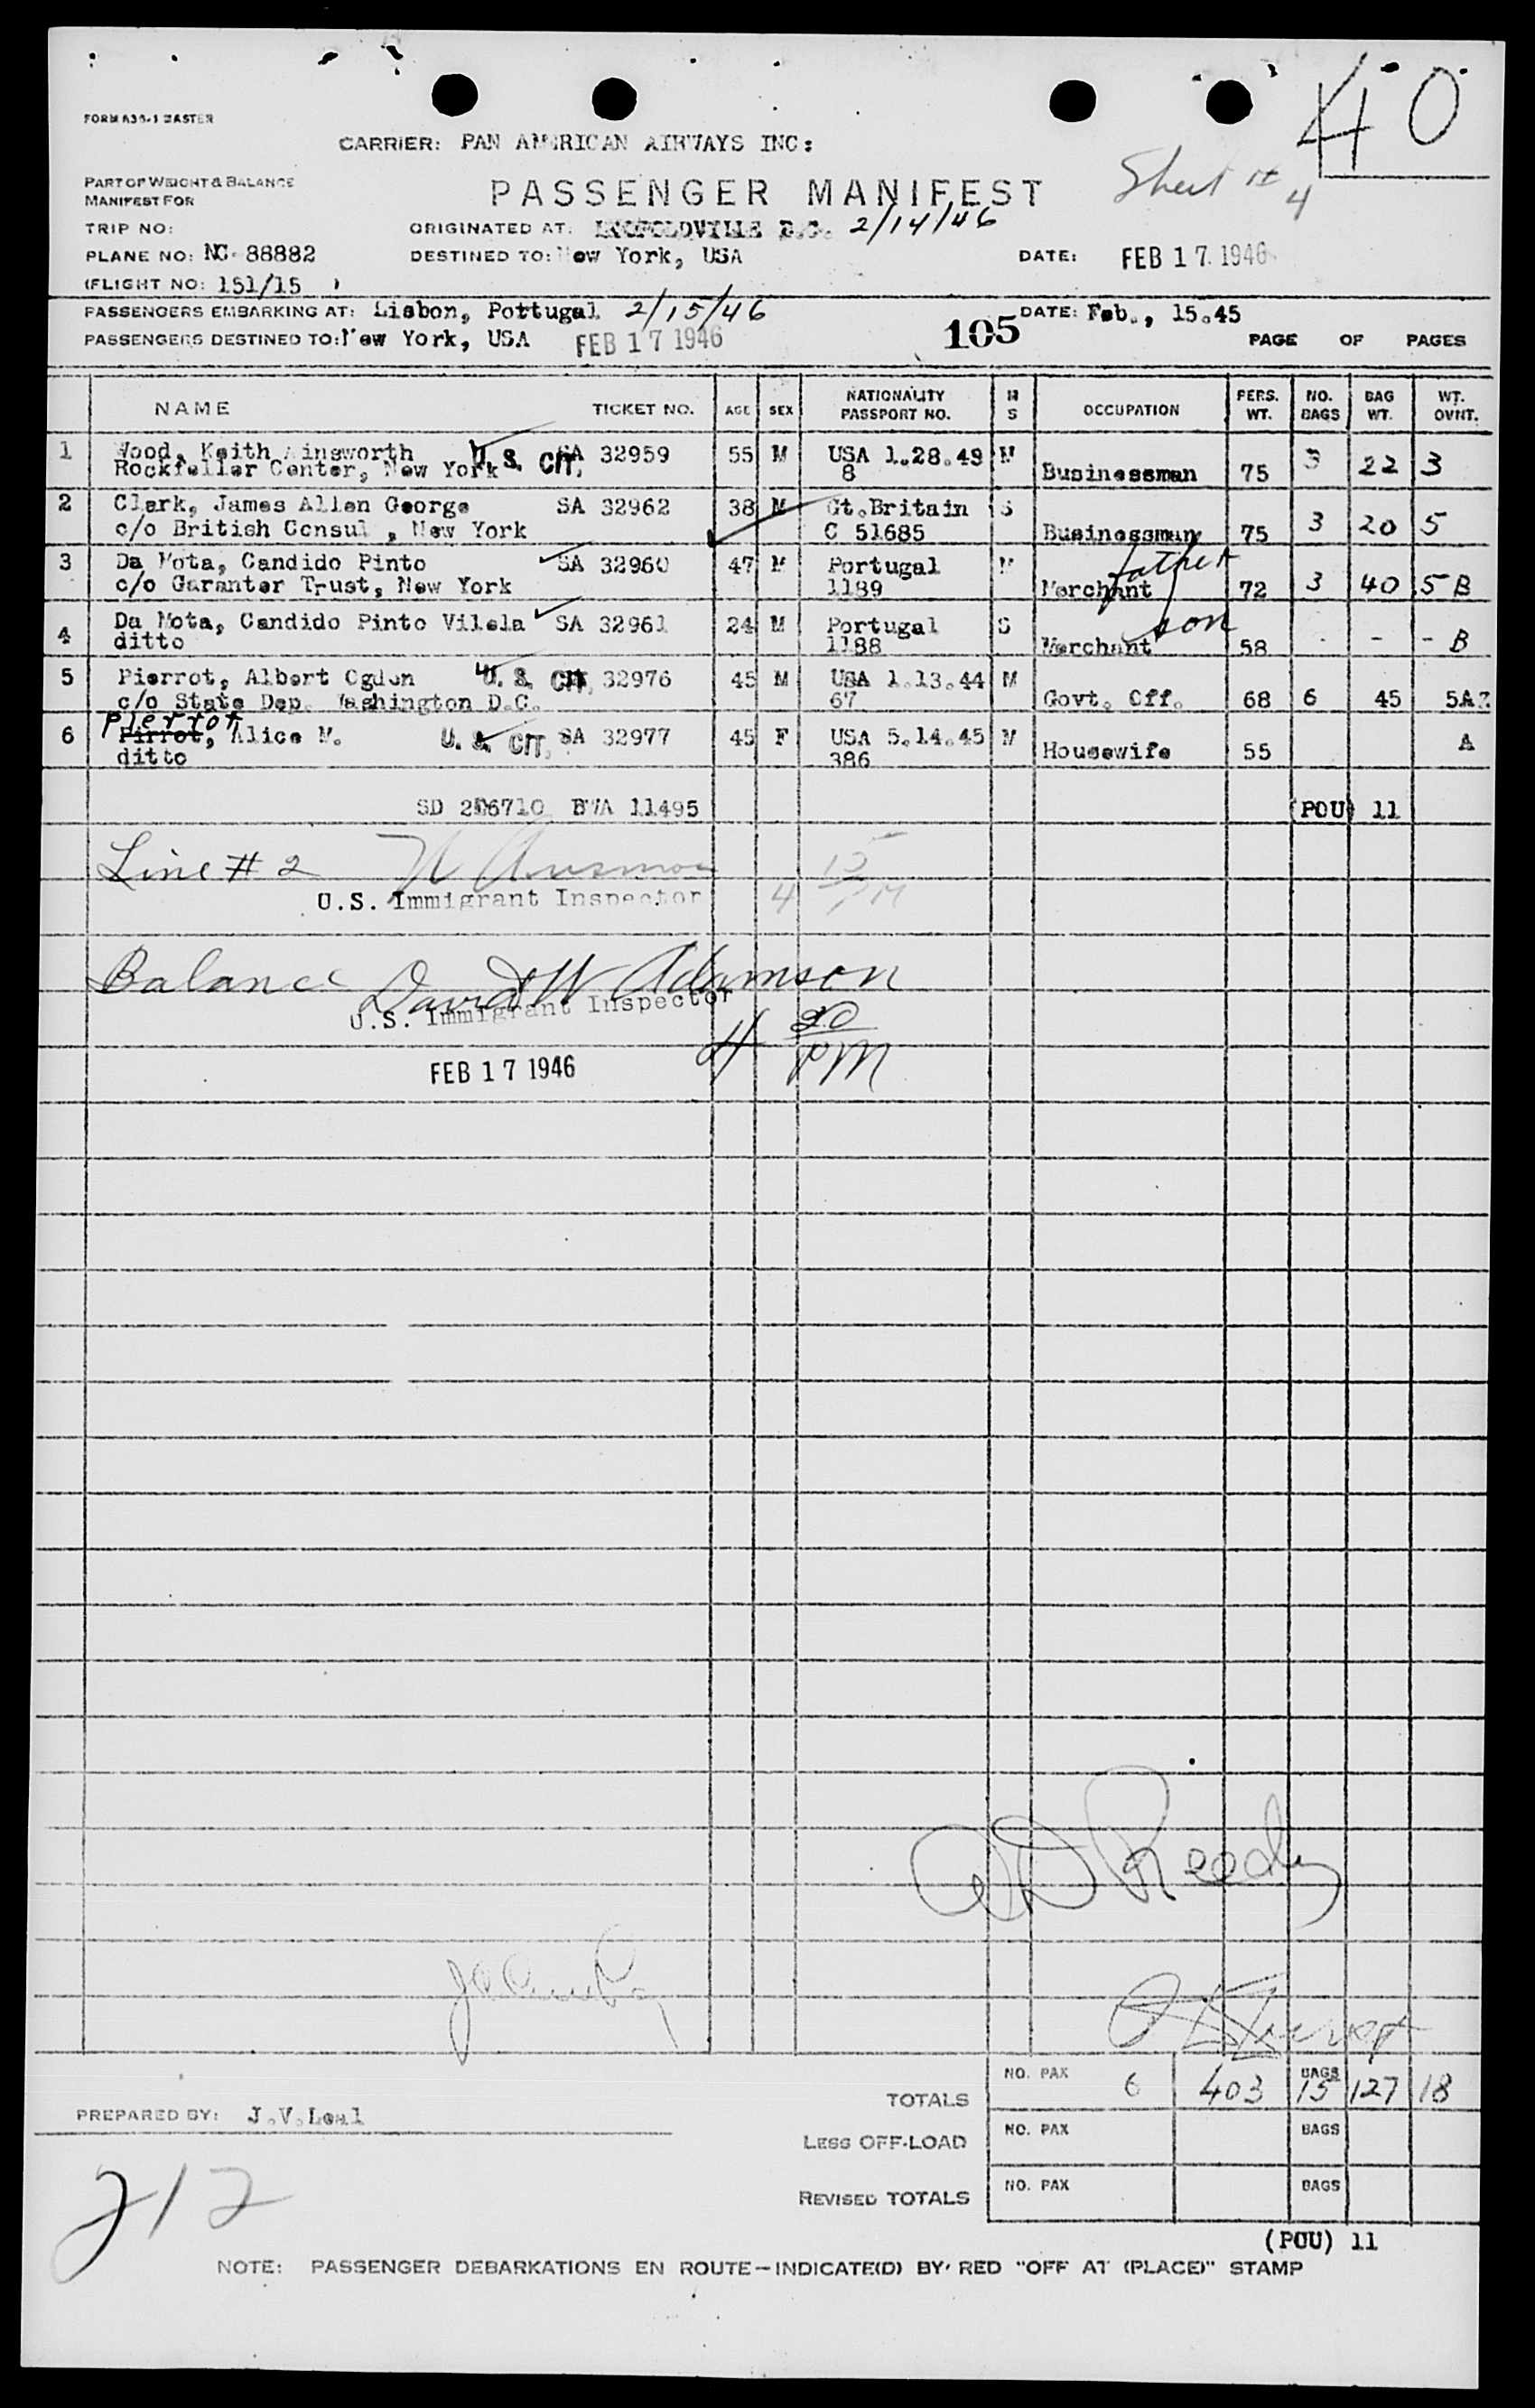 40
FORM 635-1 MASTER
CARRIER: PAN AMERICAN AIRWAYS INC:
Sheet # 4
PART OF WEIGHT & BALANCE
MANIFEST FOR
PASSENGER MANIFEST
TRIP NO:
ORIGINATED AT: LEOPOLDVILLE B.C. 2/14/46
PLANE NO: NC- 88882
DESTINED TO: New York, USA
DATE: FEB 17 1946
(FLIGHT NO: 151/15 )
PASSENGERS EMBARKING AT: Lisbon, Pottugal 2/15/46
DATE: Feb., 15.45
PASSENGERS DESTINED TO: New York, USA FEB 17 1946
105
PAGE OF PAGES
NAME TICKET NO. AGE SEX NATIONALITY PASSPORT NO. M S OCCUPATION PERS. WT. NO. BAGS BAG WT. WT. OVNT.
1 Wood, Keith Ainsworth U.S. CIT. SA 32959 55 M USA 1.28.49 M
Rockfeller Center, New York 8 Businessman 75 3 22 3
2 Clark, James Allen George SA 32962 38 M Gt.Britain S
c/o British Consul , New York C 51685 Businessman 75 3 20 5
3 Da Mota, Candido Pinto SA 32960 47 M Portugal M father
c/o Garanter Trust, New York 1189 Merchant 72 3 40 5 B
4 Da Mota, Candido Pinto Vilela SA 32961 24 M Portugal S son
ditto 1188 Merchant 58 - - - B
5 Pierrot, Albert Ogden U.S. CIT. 32976 45 M USA 1.13.44 M
c/o State Dep. Washington D.C. 67 Govt. Off. 68 6 45 5A
Pierrot
6 Pirrot, Alice M. U.S. CIT. SA 32977 45 F USA 5.14.45 M A
ditto 386 Housewife 55
SD 6710 BWA 11495 (POU) 11
Line # 2
U.S. Immigrant Inspector
4 15 PM
Balance David W Adamson
U.S. Immigrant Inspector
4 20 PM
FEB 17 1946
Reedy
TOTALS NO. PAX 6 403 BAGS 15 127 18
PREPARED BY: J.V.Leal
LESS OFF-LOAD NO. PAX BAGS
REVISED TOTALS NO. PAX BAGS
212
(POU) 11
NOTE: PASSENGER DEBARKATIONS EN ROUTE-INDICATE(D) BY RED "OFF AT (PLACE)" STAMP